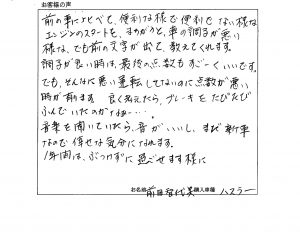 お客様の声
前の車にくらべて、便利な様で便利でない様な
エンジンのスタートを、まちがうと、車の調子が悪い
様な、でも前の文字が出て、教えてくれます。
調子が良い時は、最後の点数もすごーくいいです。
でも、そんなに悪い運転してないのに点数が悪い
時が有ります　良く考えたら、ブレーキをたびたび
ふんでいたのかな…。
音楽を聞いていたら、音がいいし、まだ新車
なので幸せな気分になれます。
1年間は、ぶつけずに過ごせます様に
お名前 前田 智代美 購入車種 ハスラー